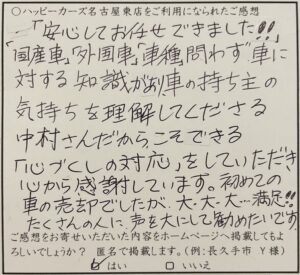 ○ハッピーカーズ名古屋東店をご利用になられたご感想
「安心してお任せできました!!」
「国産車」「外国車」「車種」問わず、車に
対する知識があり車の持ち主の
気持ちを理解してくださる
中村さんだからこそできる
「心づくしの対応」をしていただき
心から感謝しています。初めての
車の売却でしたが、大・大・大…満足!!
たくさんの人に、声を大にして勧めたいです。
ご感想をお寄せいただいた内容をホームページへ掲載してもよ
ろしいでしょうか? 匿名で掲載します。(例:長久手市 Y様)
☑はい □いいえ